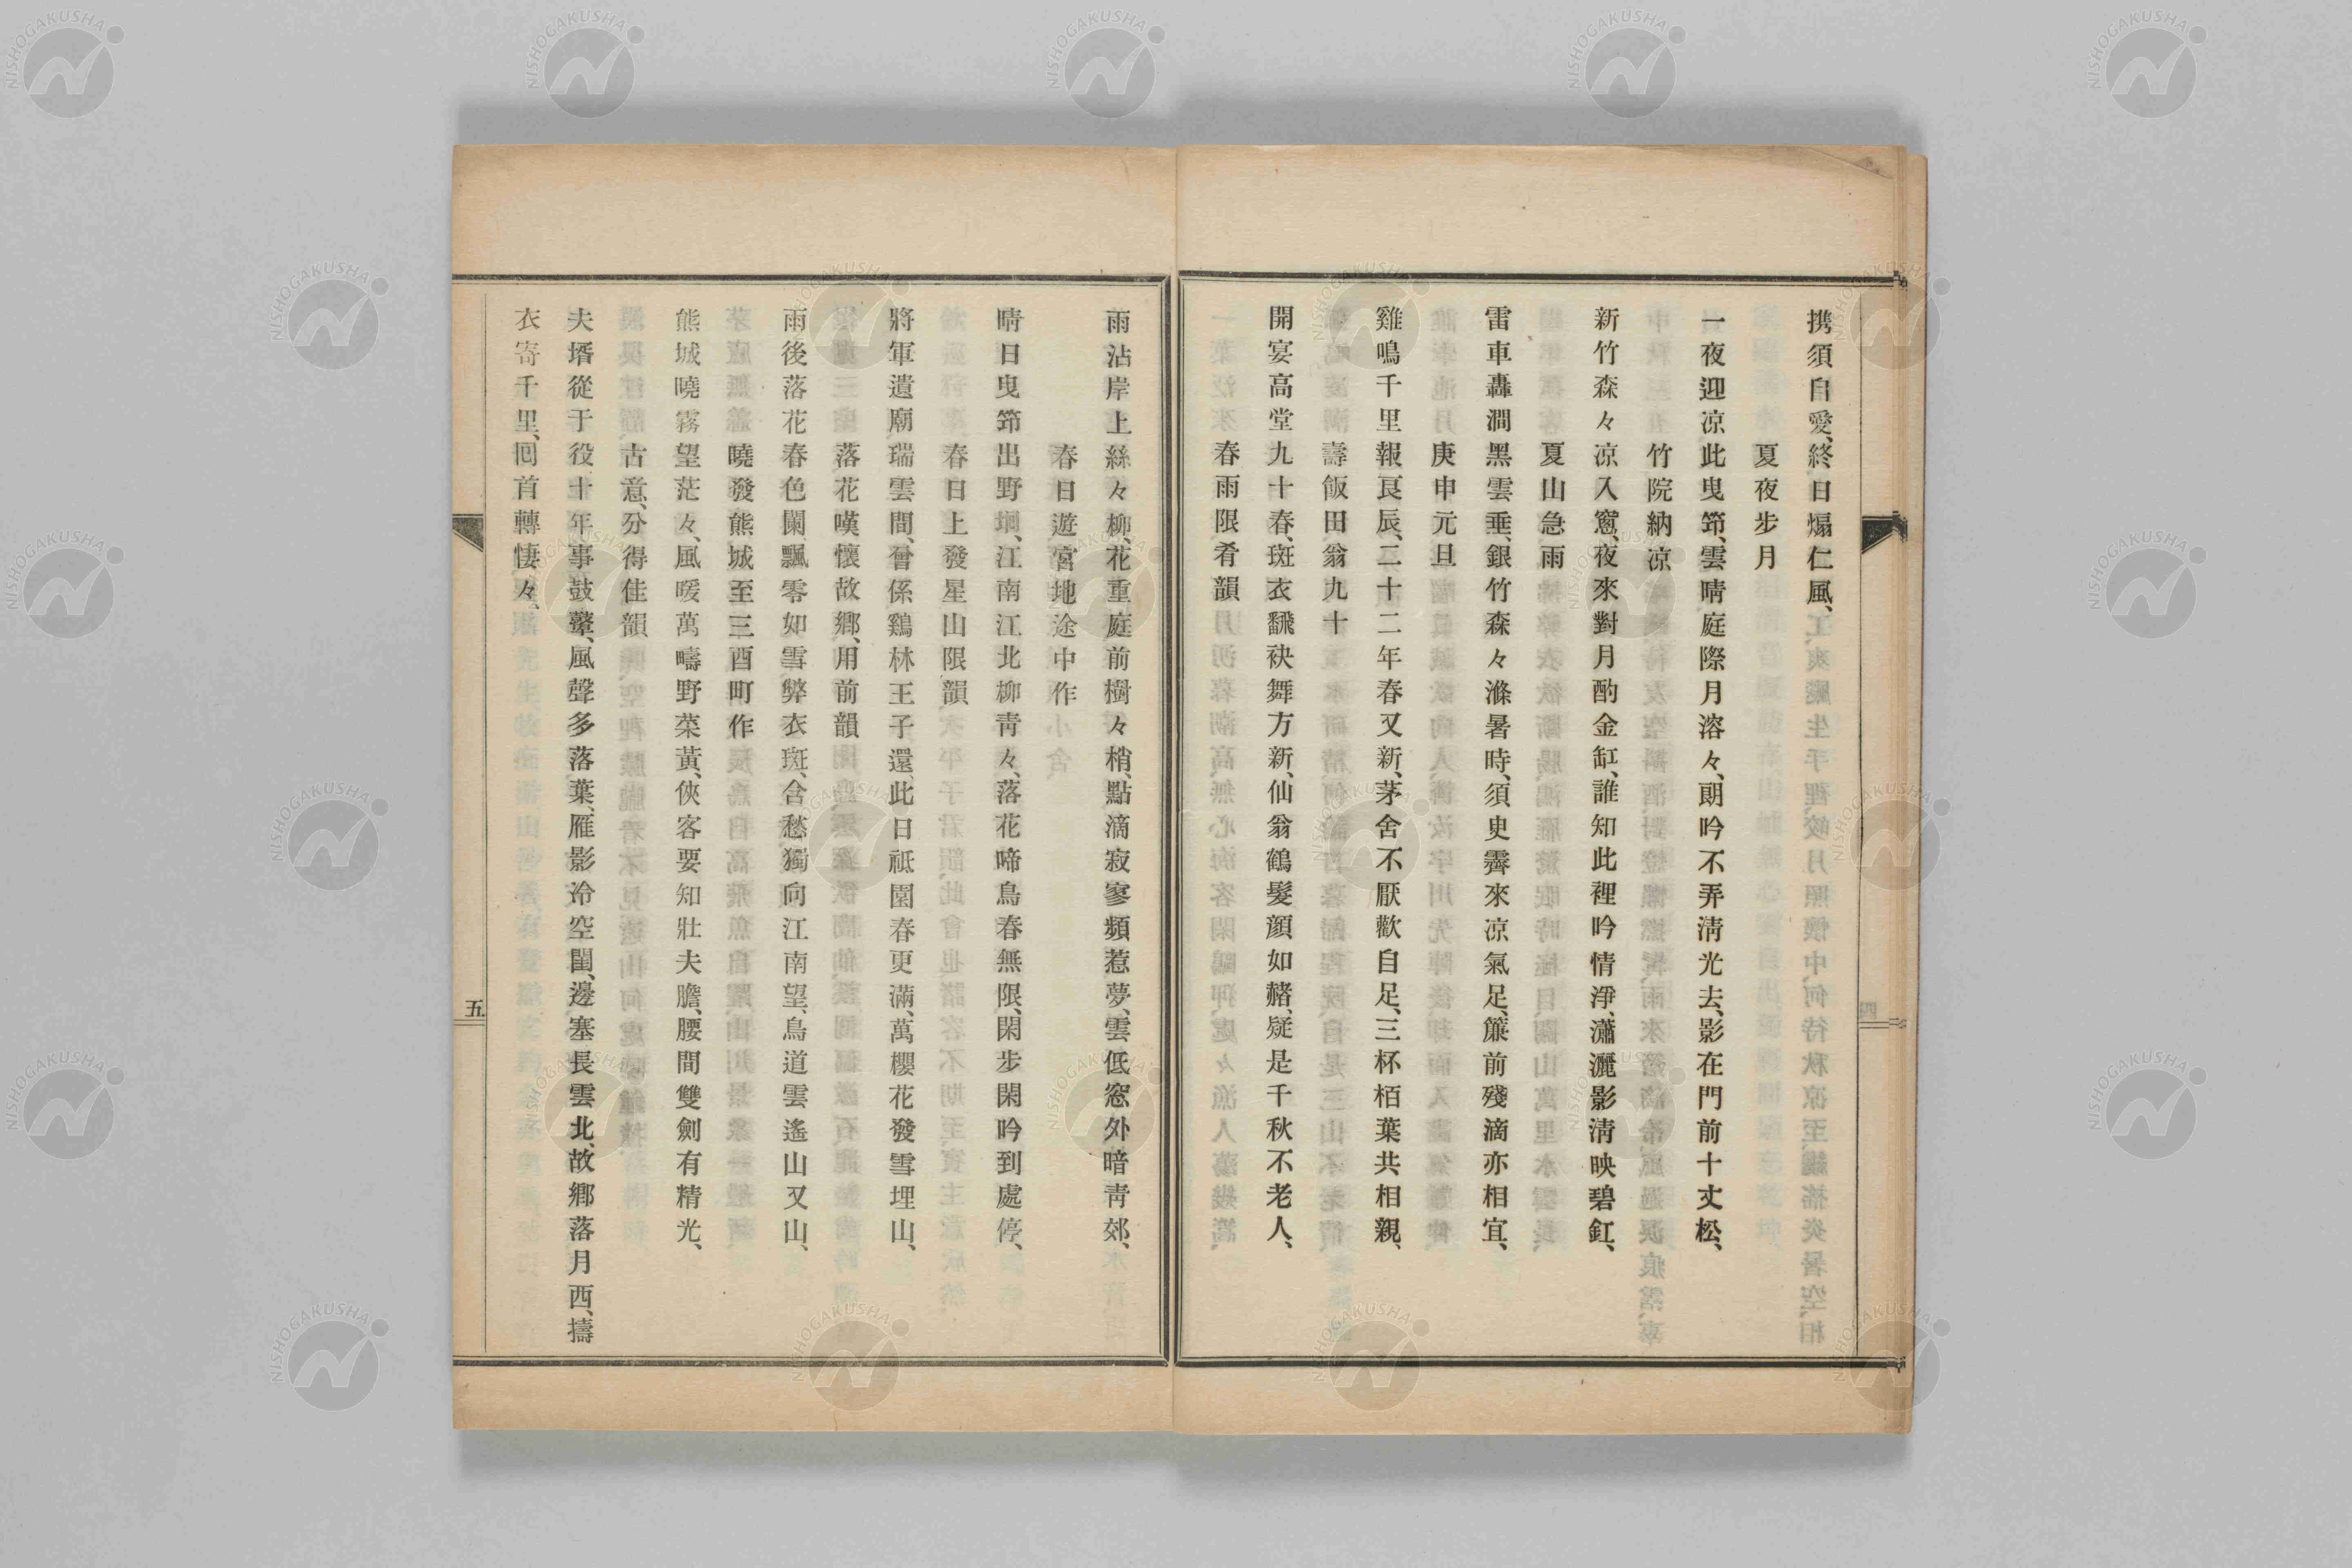 携須自愛、終日煽仁風、
夏夜步月
一夜迎凉此曳筇、雲晴庭際月溶々、朗吟不弄淸光去、影在門前十丈松、
竹院納凉
新竹森々凉入窻、夜來對月酌金缸、誰知此裡吟情淨、瀟灑影淸映碧釭、
夏山急雨
雷車轟澗黑雲垂、銀竹森々滌暑時、須史霽來凉氣足、簾前殘滴亦相宜、
庚申元旦
雞鳴千里報良辰、二十二年春又新、茅舍不厭歡自足、三杯栢葉共相親、
壽飯田翁九十
開宴高堂九十春、斑衣飜袂舞方新、仙翁鶴髮顏如赭、疑是千秋不老人、
春雨限肴韻
雨沾岸上絲々柳、花重庭前樹々梢、點滴寂寥頻惹夢、雲低窓外暗靑郊、
春日遊宮地途中作
晴日曳筇出野坰、江南江北柳靑々、落花啼鳥春無限、閑步閑吟到處停、
春日上發星山限韻
將軍遺廟瑞雲間、曾係鷄林王子還、此日祗園春更滿、萬櫻花發雪埋山、
落花嘆懷故鄕、用前韻
雨後落花春色闌、飄零如雪弊衣斑、含愁獨向江南望、鳥道雲遙山又山、
曉發熊城至三酉町作
熊城曉霧望茫々、風暖萬疇野菜黃、俠客要知壯夫膽、腰間雙劍有精光、
古意、分得佳韻
夫壻從于役、十年事鼓鼙、風聲多落葉、雁影冷空閨、邊塞長雲北、故鄕落月西、擣
衣寄千里、回首轉悽々、
五
四
NISHOGAKUSHA